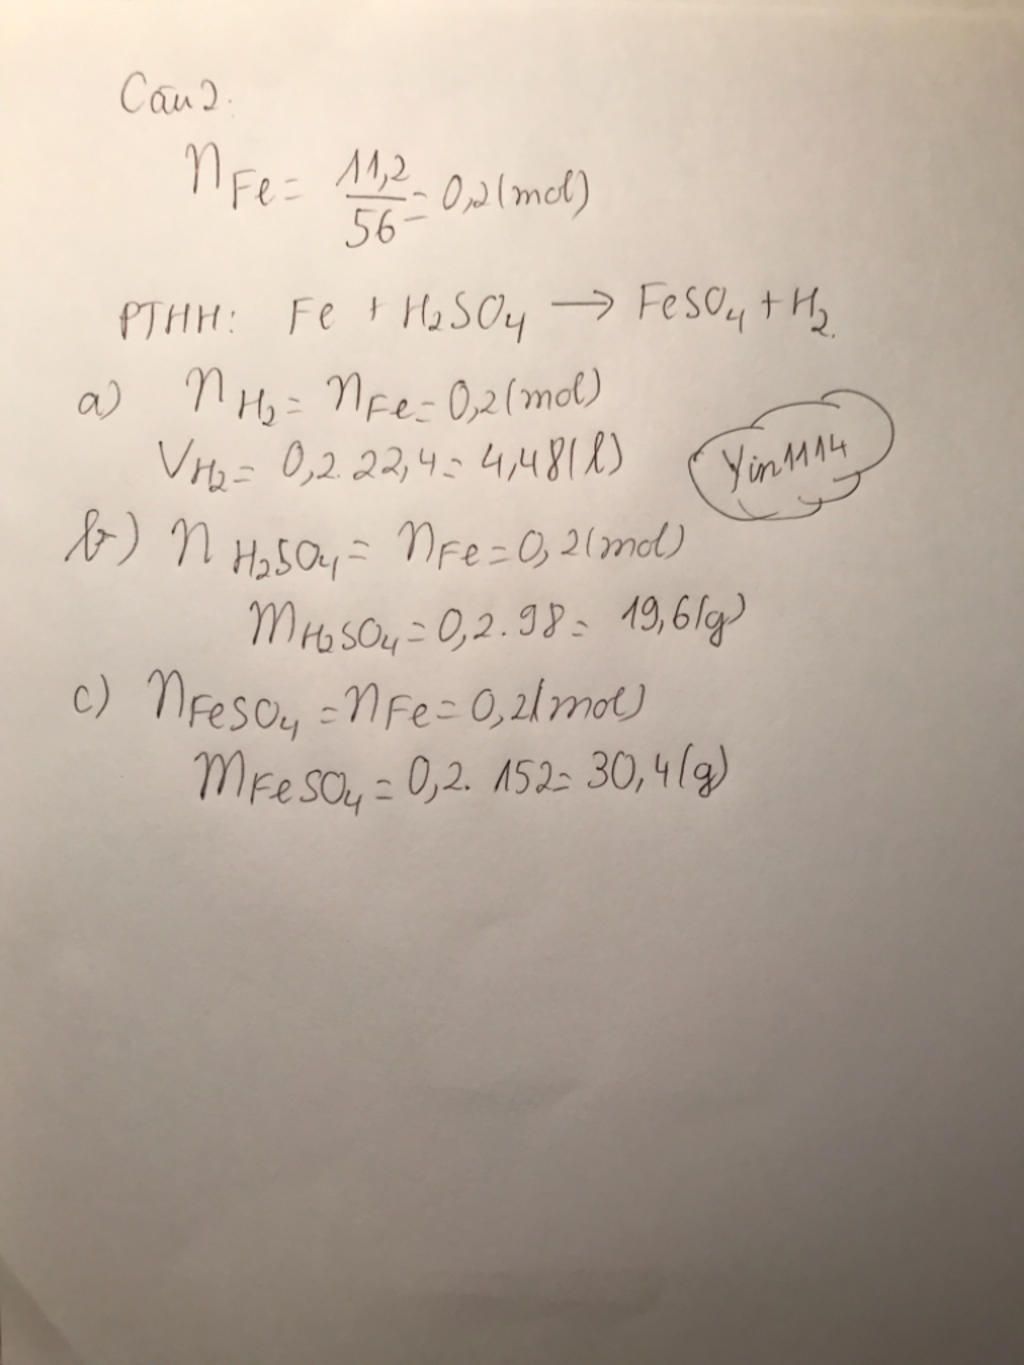 Câu 2:
nFe = 11,2/56 = 0,2 (mol)
PTHH: Fe + H2SO4 → FeSO4 + H2.
a) nH2 = nFe = 0,2 (mol)
VH2 = 0,2. 22,4 = 4,48 (l)
Yin1114
b) nH2SO4 = nFe = 0,2 (mol)
mH2SO4 = 0,2. 98 = 19,6 (g)
c) nFeSO4 = nFe = 0,2 (mol)
mFeSO4 = 0,2. 152 = 30,4 (g)